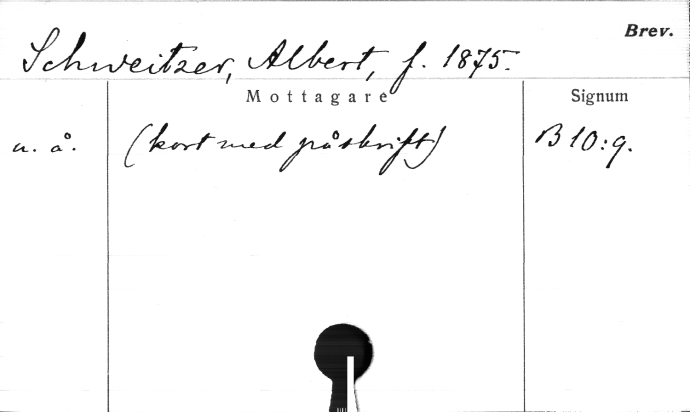 Brev.
Schweitzer, Albert, f. 1875.
Mottagare Signum
u. å. (kort med påskrift) B 10:9.